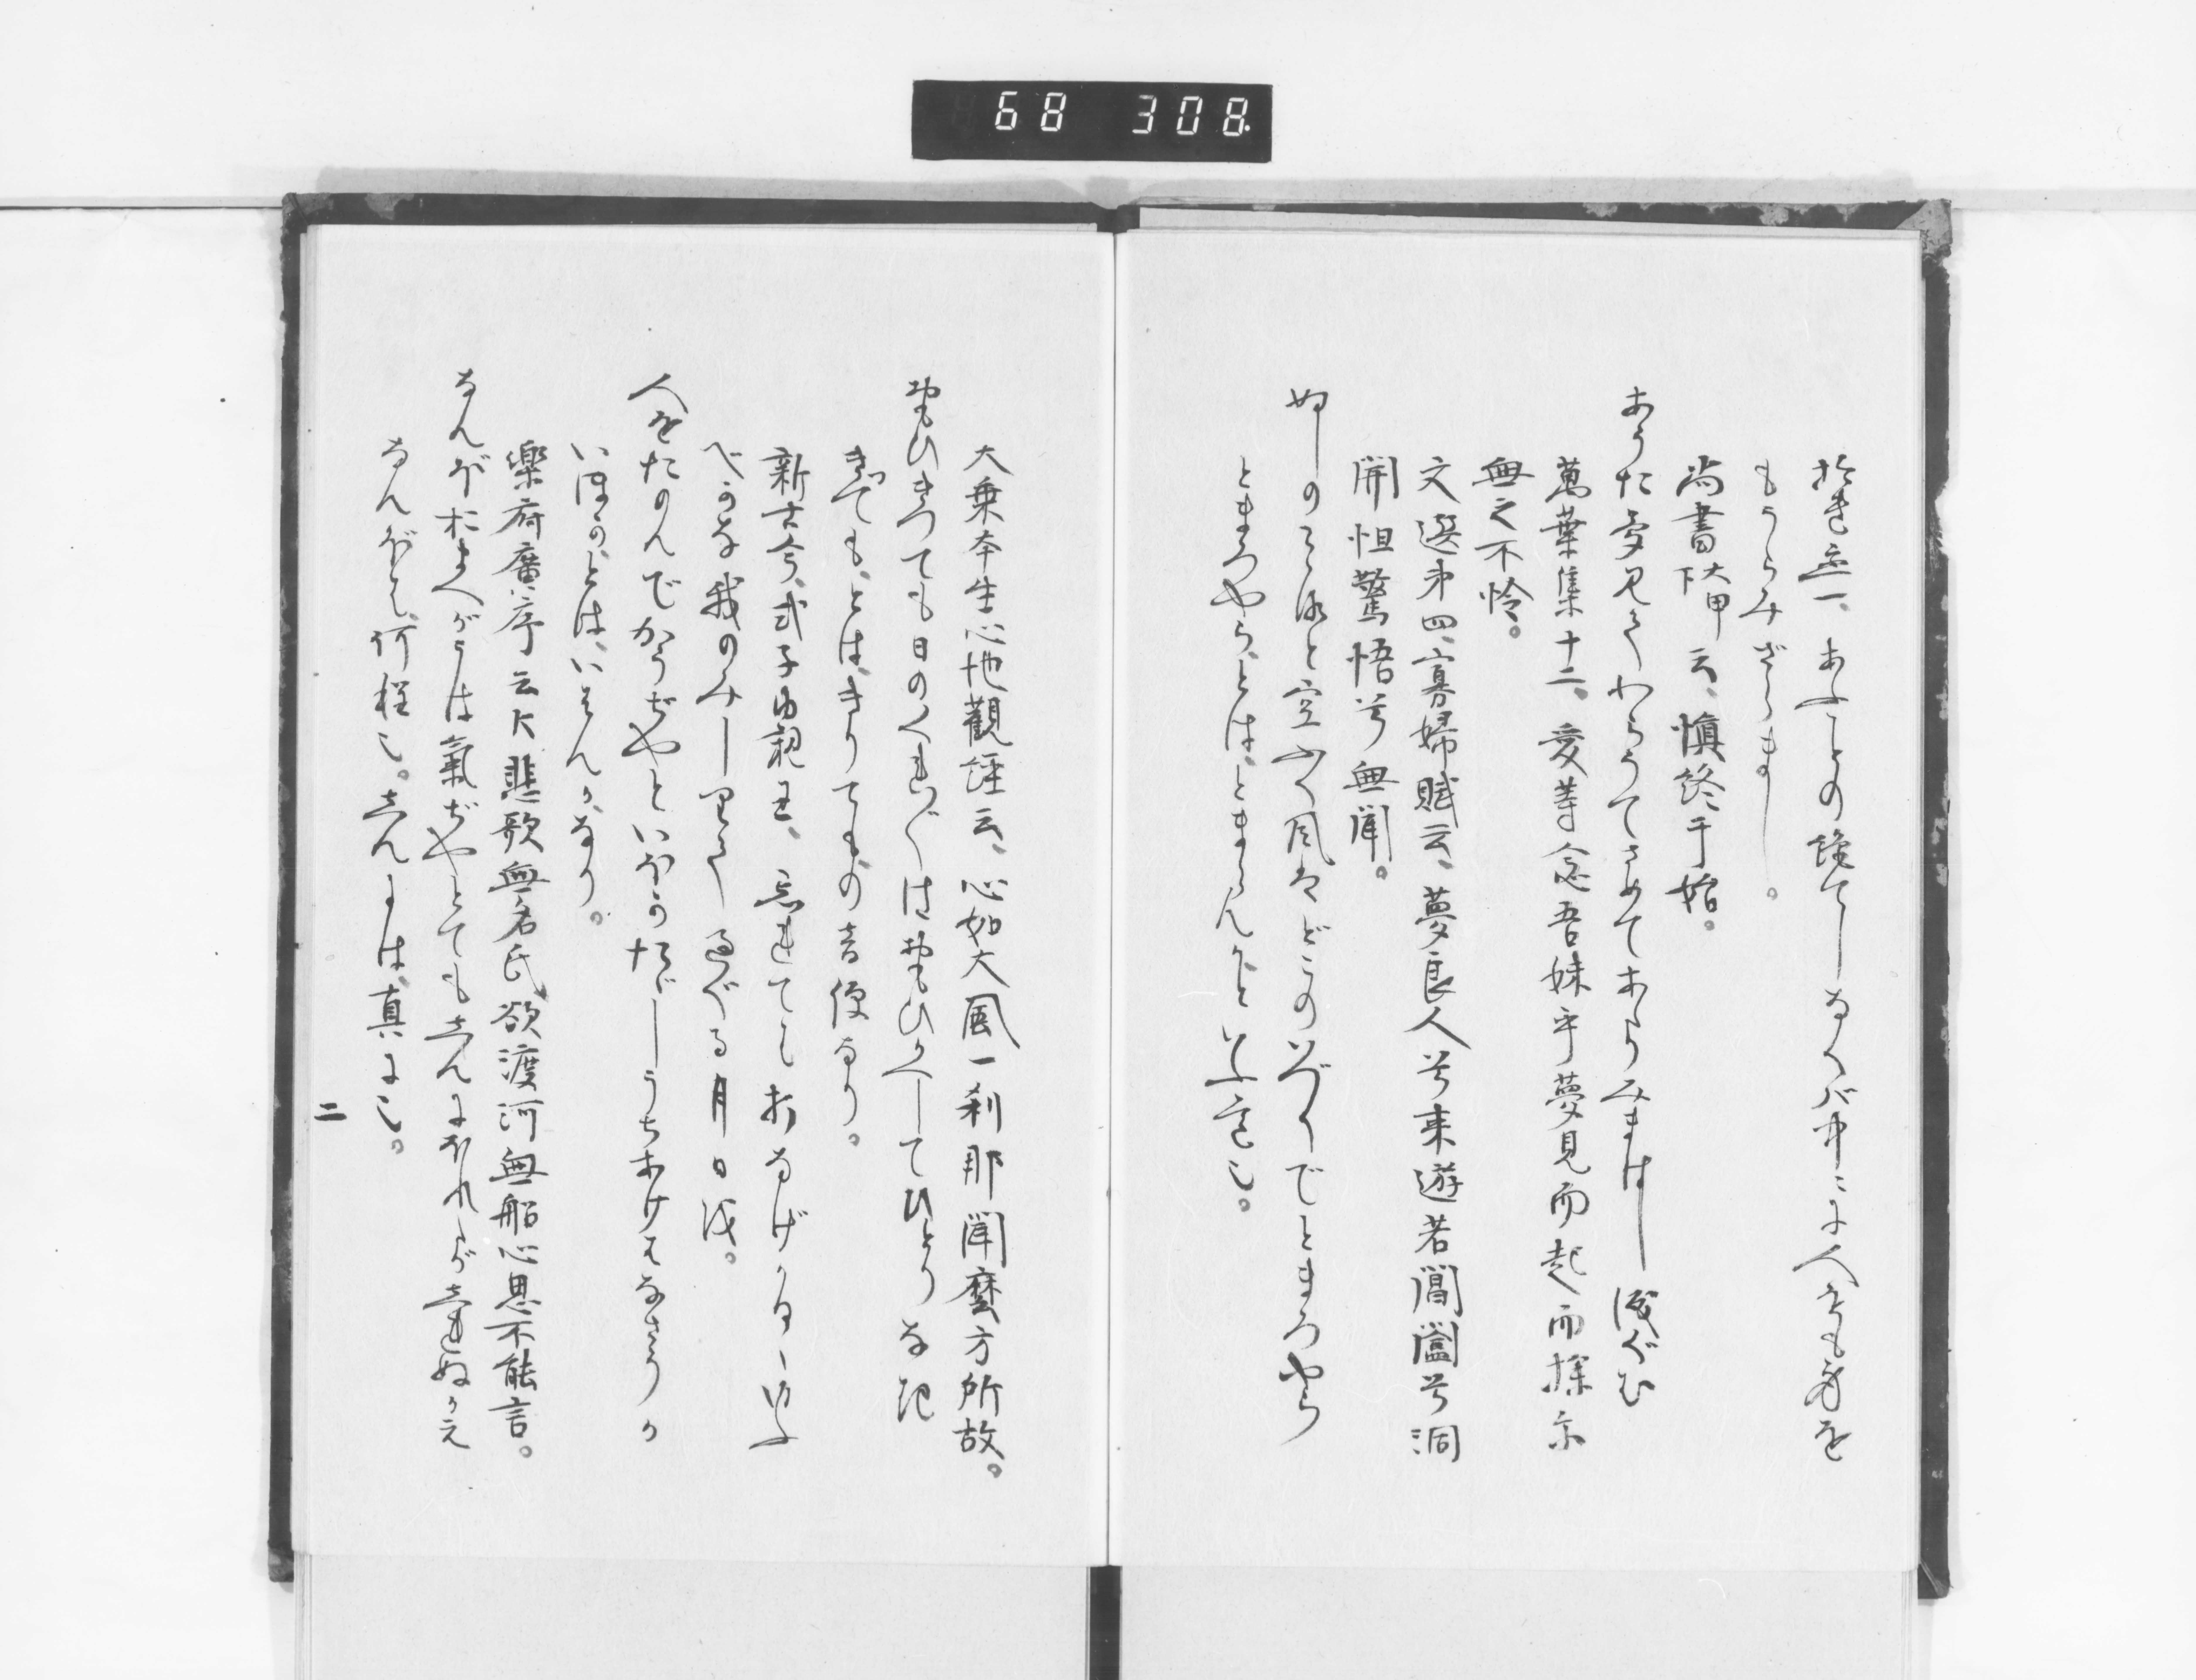 68 308
拾遺一、あふことの絶てしなくバ中々に人をも身を
もうらみざらまし。
尚書太甲下云、慎終于始。
あうた夢見てわらうてさめてあたりみまはし涙ぐむ
萬葉集十二、愛等念吾妹乎夢見而起而探尓
無之不怜。
文選第四、寡婦賦云、夢良人兮来遊若閶闔兮洞
開怛驚悟兮無聞。
の と空ふく風はどこのいづくでとまろやら
とまろやら、とは、とまらんかといふ意也。
大乗本生心地觀經云、心如大風一刹那間歴方所故。
おもひきつても日のくれぐはおもひかへしてひとりなき
きつても、とは、きりても、の音便なり。
新古今、式子内親王、忘れてはうちなげかるゝゆふ
べかな我のみしりて過ぐる月日を。
人をたのんでかうぢやといおかただしうちあけてなさりよか
いほか、とは、いはんか、なり。
樂府廣序云大悲歌無名氏、欲渡河無船心思不能言。
なんぼおまへがうは氣ぢやとてもしんにほれたがしれぬかえ
なんぼは、何程也。しんには、真に也。
二